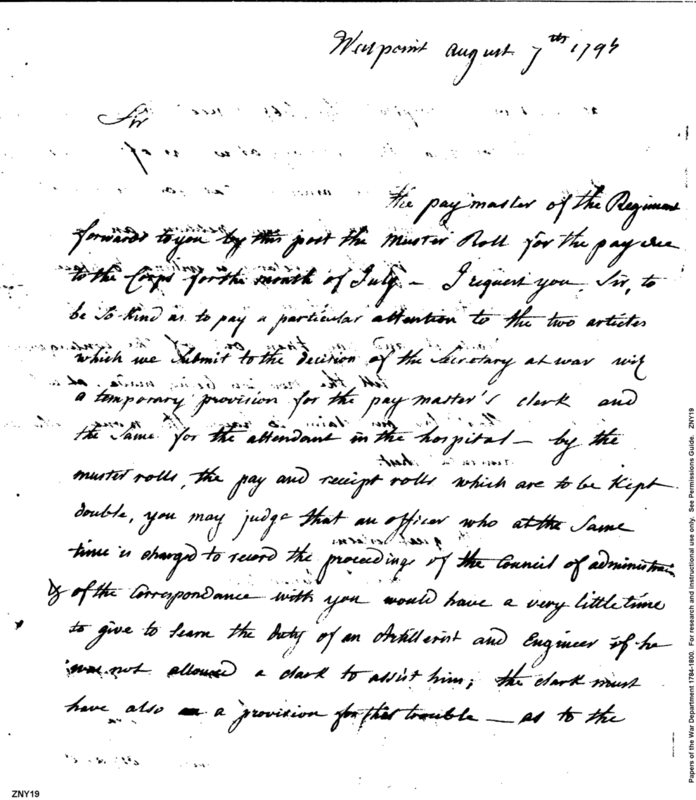 West point august 7th 179
Sir
the pay master of the Regiment
forwards to you by this post the Muster Roll for the pay due
to the Corps for the month of July – I request you, Sir, to
be so Kind as to pay a particular attention to the two articles
which we submit to the decision of the Secretary at war viz
a temporary provision for the pay master's clerk and
the same for the attendant in the hospital – by the
muster rolls, the pay and receipt rolls which are to be Kept
double, you may judge that an officer who at the same
time is charged to record the proceedings of the Council of administration
& of the Correspondance with you would have a very little time
to give to learn the duty of an Artillerist and Engineer if he
was not allowed a clark to assist him; the clark must
have also a provision for that trouble – as to the
ZNY19
Papers of the War Department 1784-1800. For research and instructional use only. See Permissions Guide. ZNY19